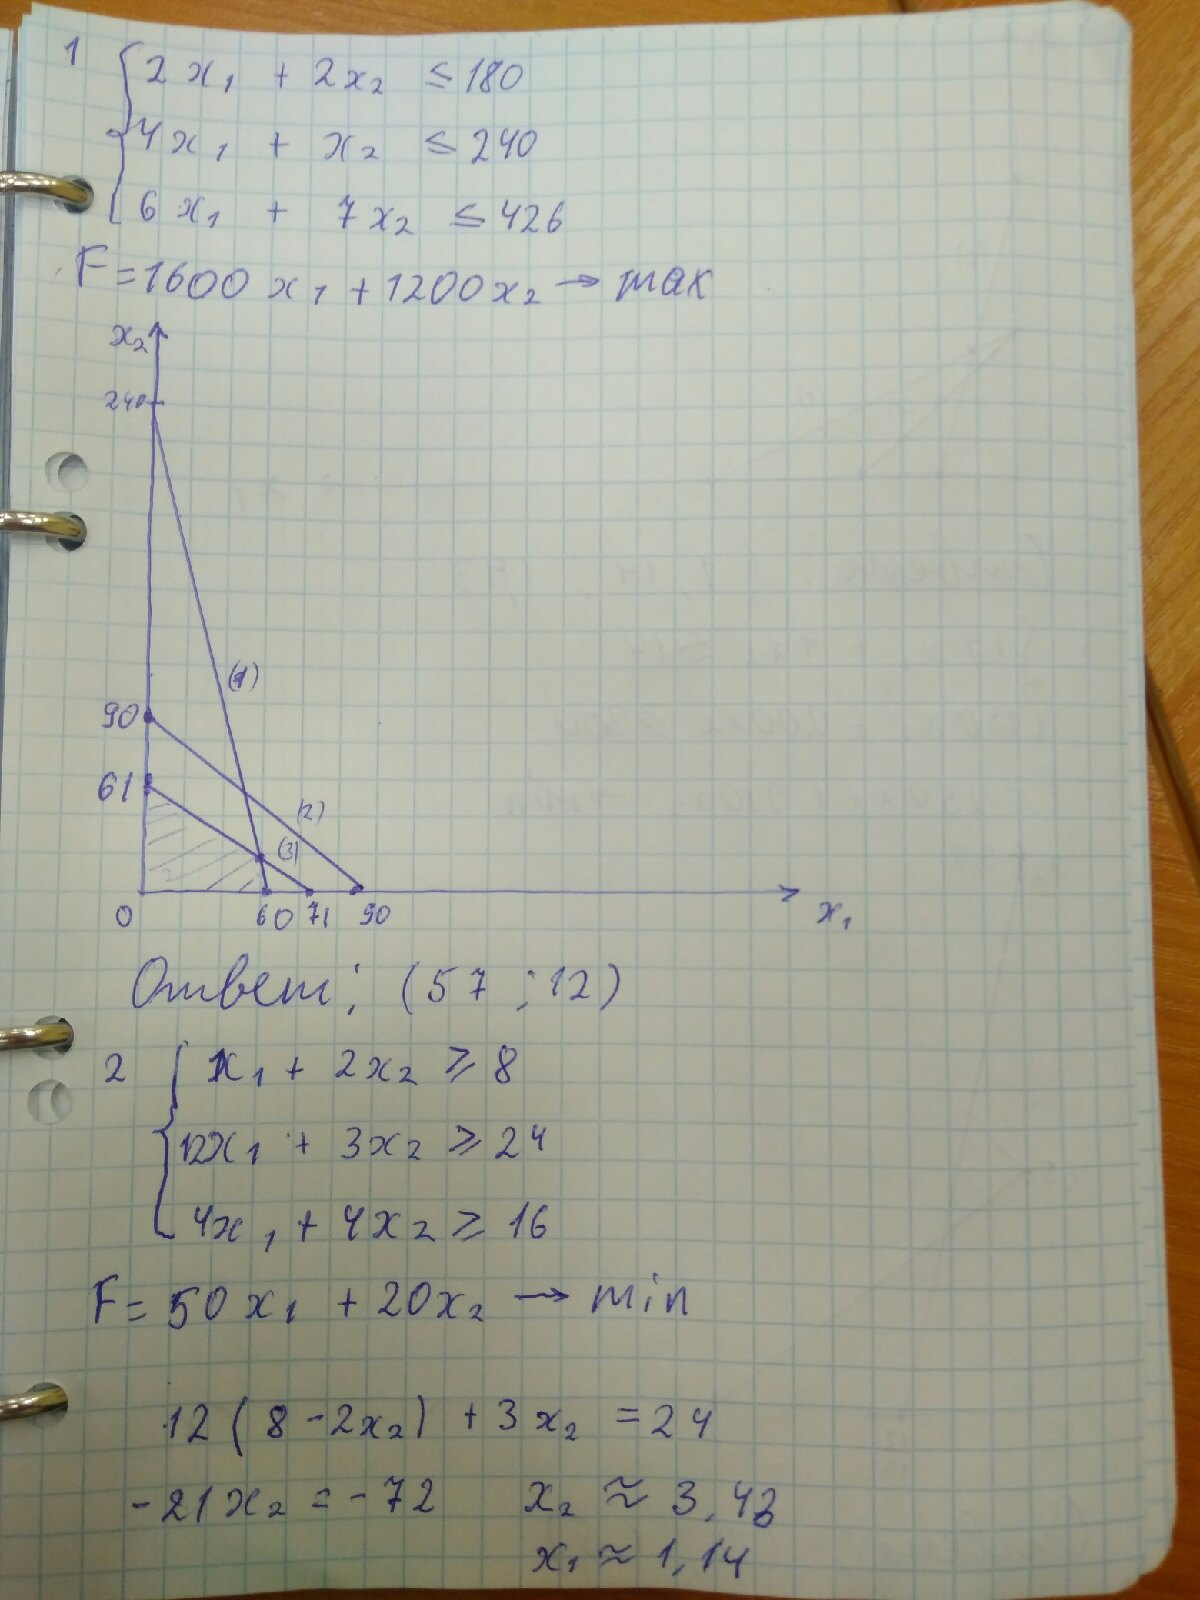 1 2x₁ + 2x₂ ≤ 180
4x₁ + x₂ ≤ 240
6x₁ + 7x₂ ≤ 426
F = 1600x₁ + 1200x₂ → max
x₂
240
(1)
90
61
(2)
(3)
0 60 71 90 x₁
Ответ: (57 ; 12)
2 x₁ + 2x₂ ≥ 8
12x₁ + 3x₂ ≥ 24
4x₁ + 4x₂ ≥ 16
F = 50x₁ + 20x₂ → min
12(8 - 2x₂) + 3x₂ = 24
-21x₂ = -72 x₂ ≈ 3,43
x₁ ≈ 1,14